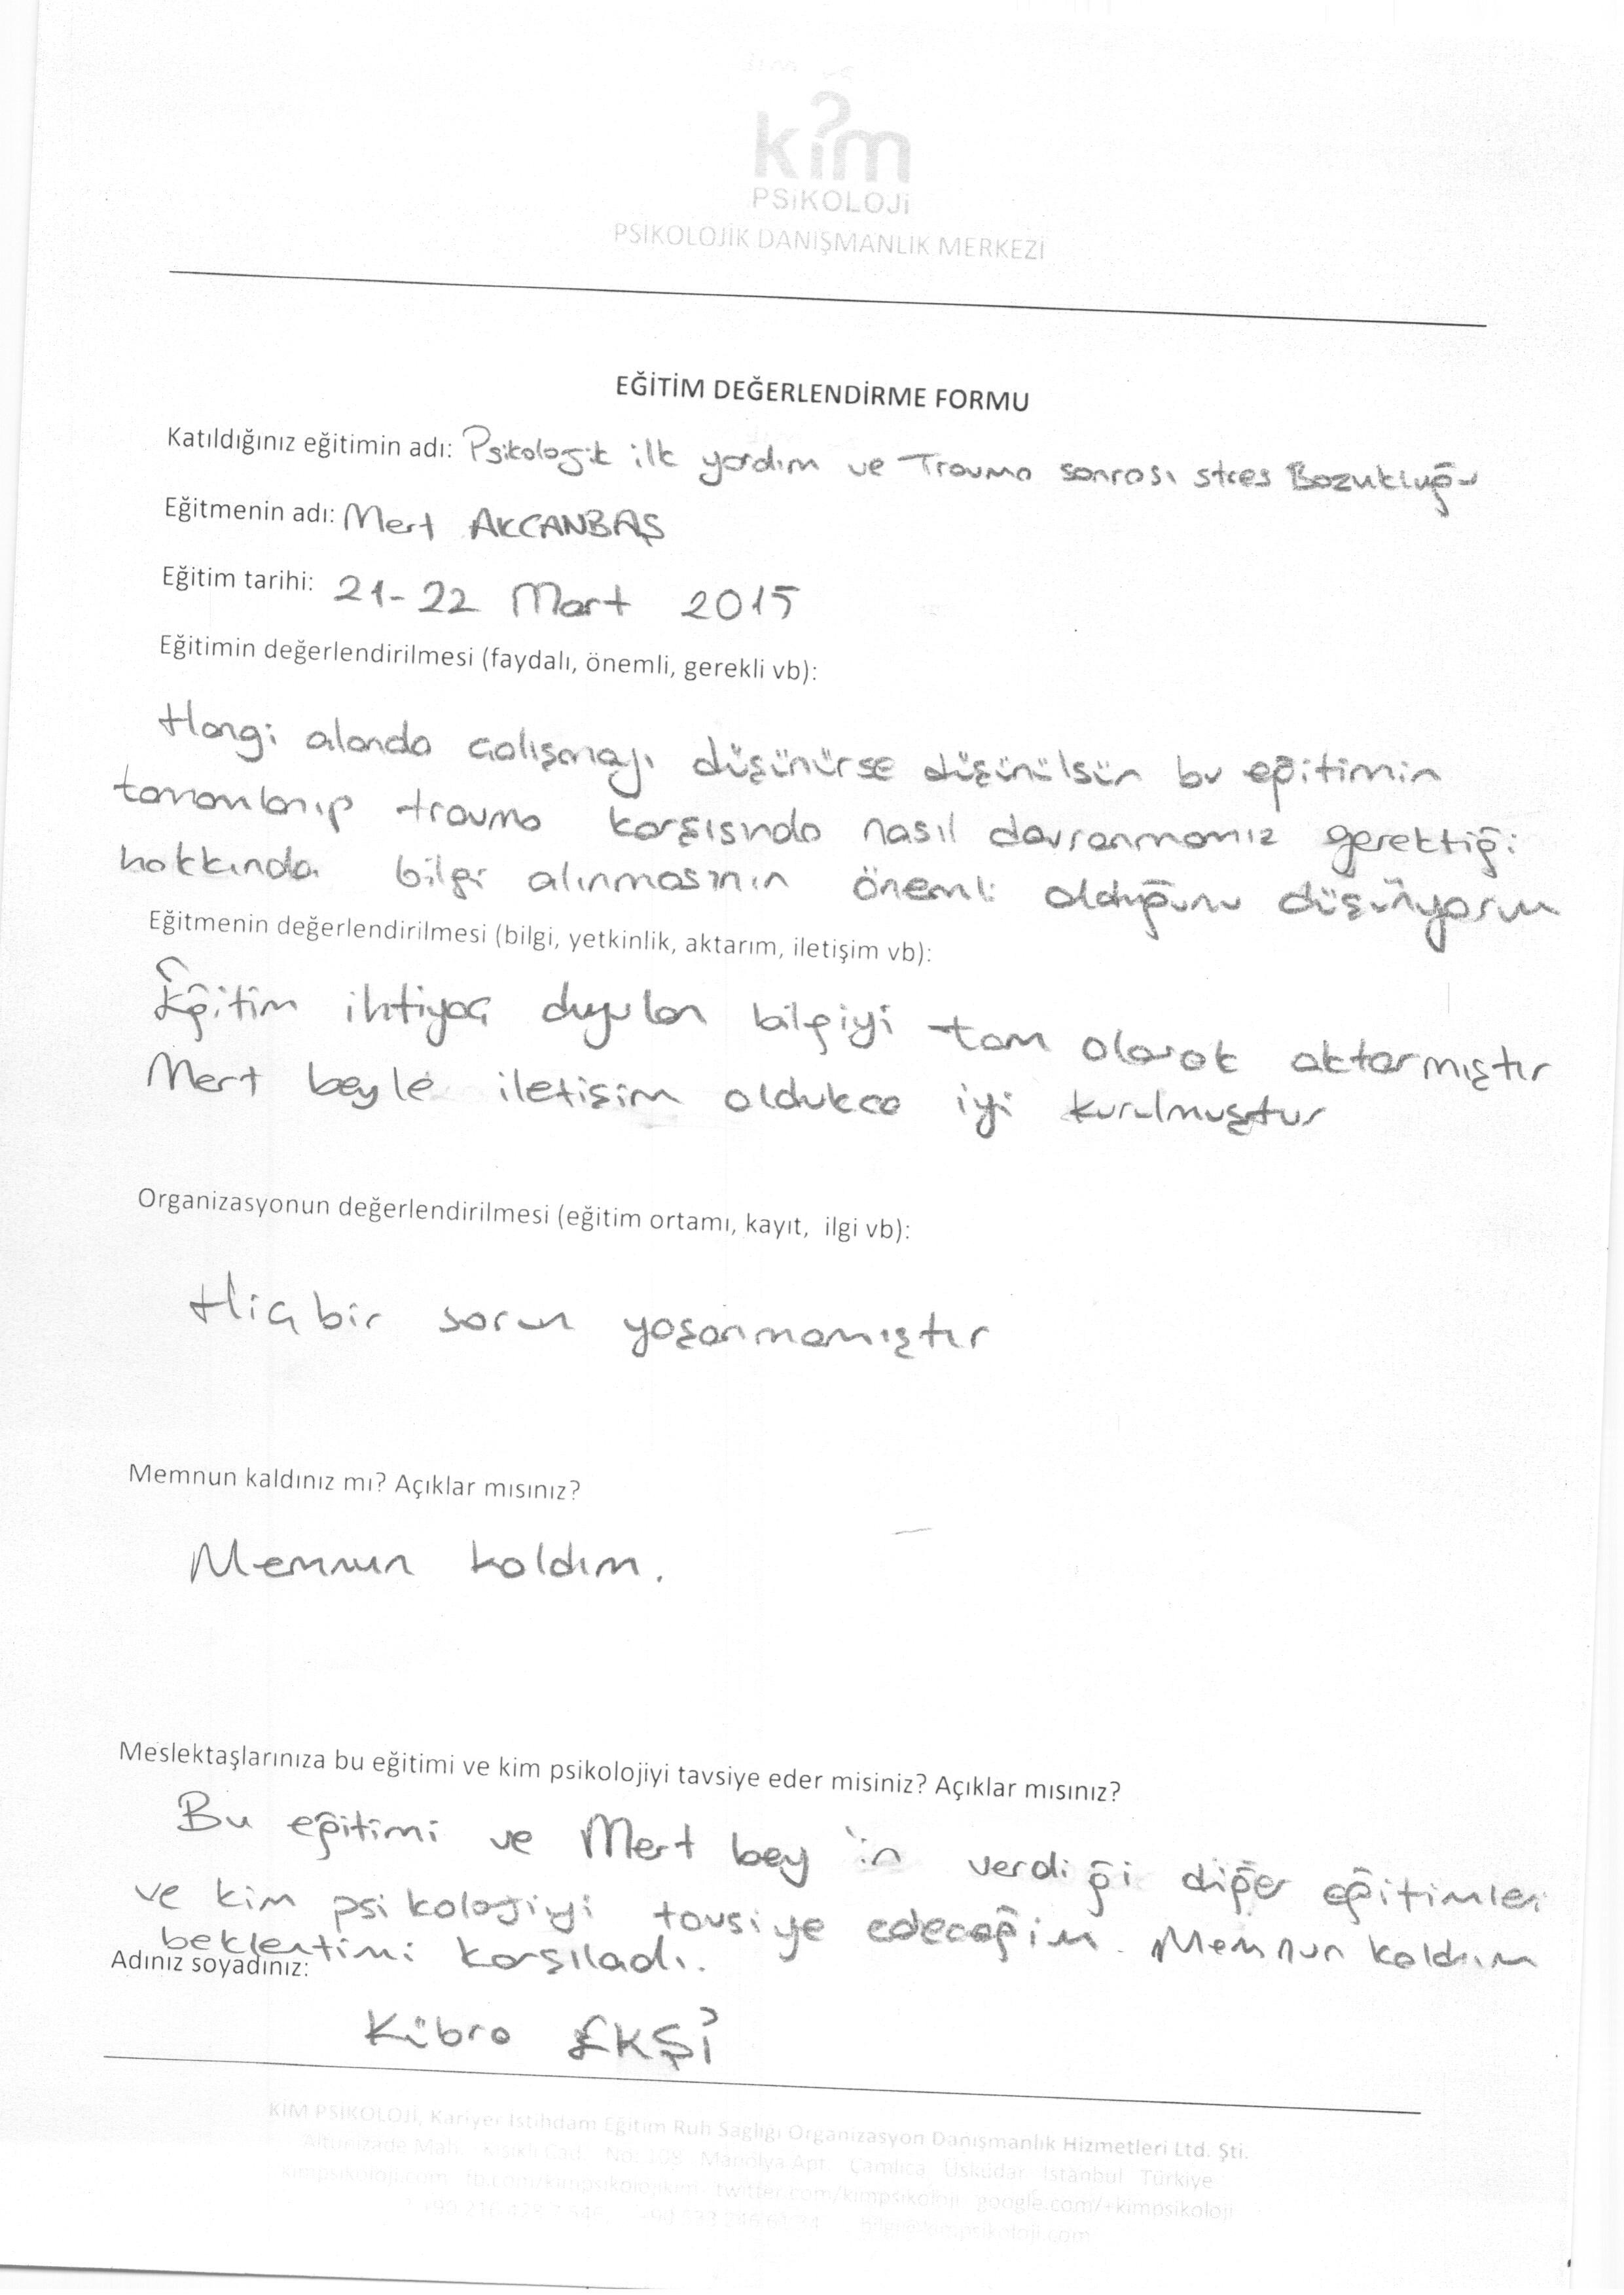 kim
PSiKOLOJi
PSİKOLOJİK DANIŞMANLIK MERKEZİ
EĞİTİM DEĞERLENDİRME FORMU
Katıldığınız eğitimin adı: Psikolojik ilk yardım ve Travma sonrası stres Bozukluğu
Eğitmenin adı: Mert AKCANBAŞ
Eğitim tarihi: 21-22 Mart 2015
Eğitimin değerlendirilmesi (faydalı, önemli, gerekli vb):
Hangi alanda çalışmayı düşünürse düşünülsün bu eğitimin
tamamlanıp travma karşısında nasıl davranmamız gerektiği
hakkında bilgi alınmasının önemli olduğunu düşünüyorum
Eğitmenin değerlendirilmesi (bilgi, yetkinlik, aktarım, iletişim vb):
Eğitim ihtiyaç duyulan bilgiyi tam olarak aktarmıştır
Mert beyle iletişim oldukca iyi kurulmuştur
Organizasyonun değerlendirilmesi (eğitim ortamı, kayıt, ilgi vb):
Hiç bir sorun yaşanmamıştır
Memnun kaldınız mı? Açıklar mısınız?
Memnun kaldım.
Meslektaşlarınıza bu eğitimi ve kim psikolojiyi tavsiye eder misiniz? Açıklar mısınız?
Bu eğitimi ve Mert bey'in verdiği diğer eğitimleri
ve kim psikolojiyi tavsiye edeceğim. Memnun kaldım
beklentimi karşıladı.
Adınız soyadınız:
Kübra EKŞİ
KİM PSİKOLOJİ, Kariyer İstihdam Eğitim Ruh Sağlığı Organizasyon Danışmanlık Hizmetleri Ltd. Şti.
Altunizade Mah. Kısıklı Cad. No: 108 Manolya Apt. Çamlıca Üsküdar İstanbul Türkiye
kimpsikoloji.com twitter.com/kimpsikoloji google.com/+kimpsikoloji
bilgi@kimpsikoloji.com